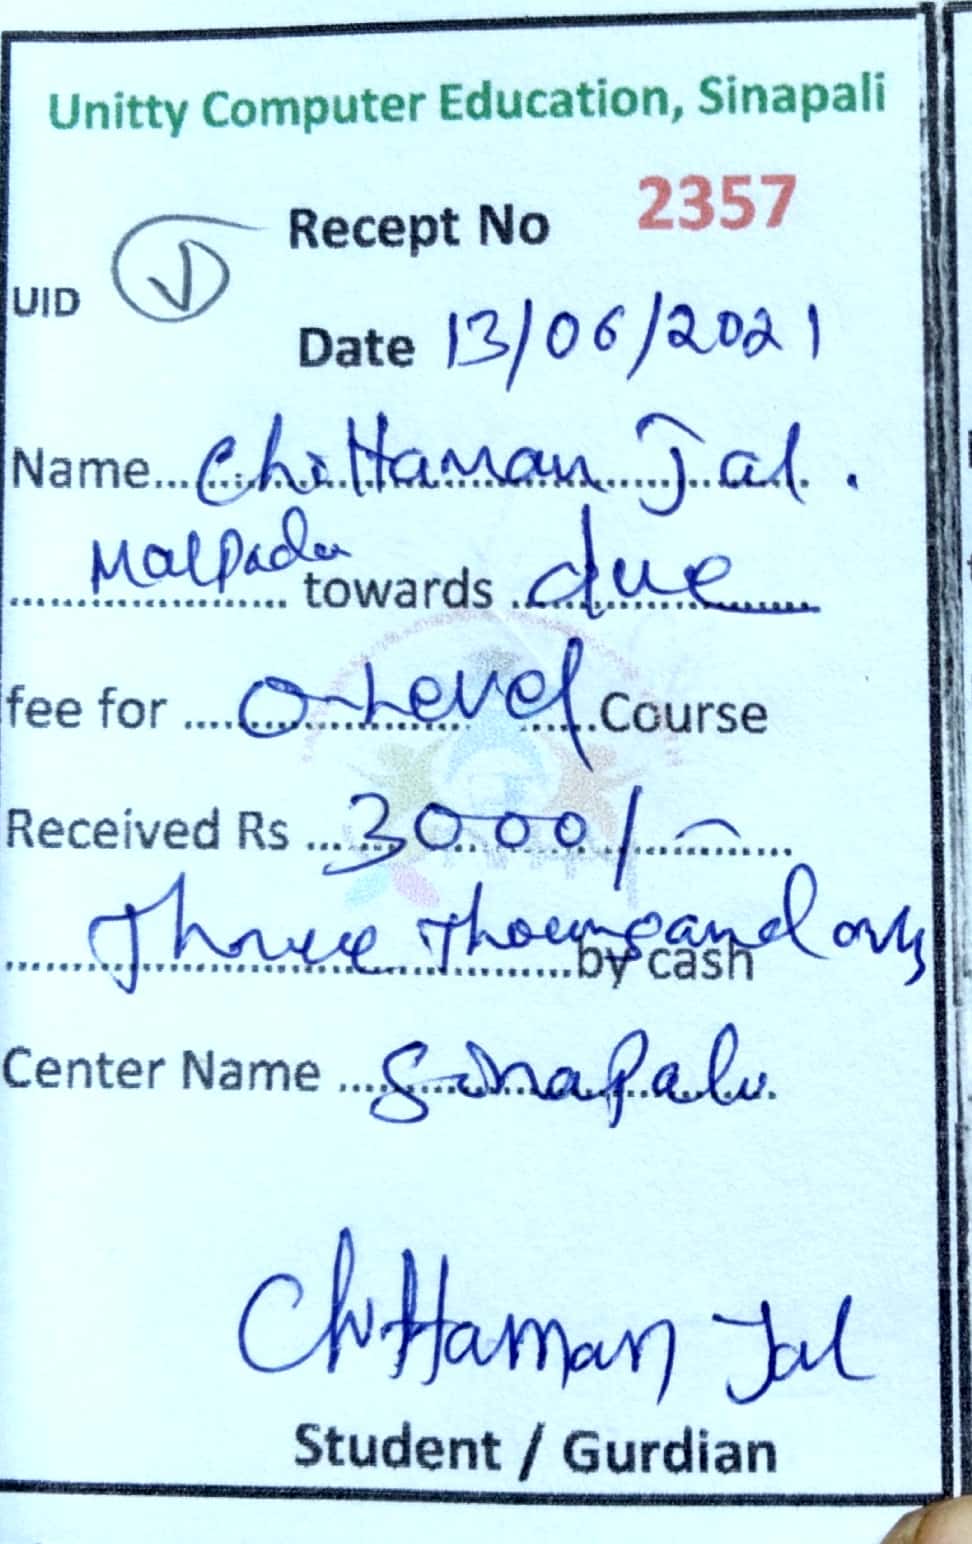 Unitty Computer Education, Sinapali
Recept No 2357
UID
Date 13/06/2021
Name... Chittaman Jal.
Malpada towards due
fee for ... O-Level Course
Received Rs ... 3000/-
Three Thoungand only by cash
Center Name ... Sinapali
Chittaman Jal
Student / Gurdian